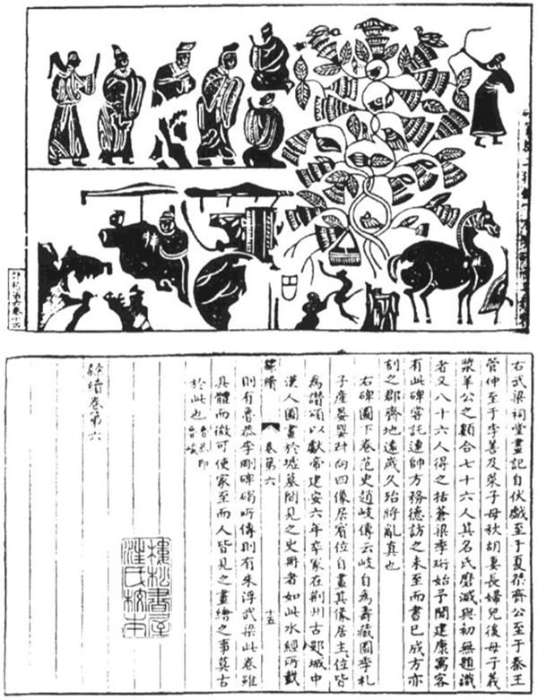 右武梁祠堂畫記自伏戲至于夏桀齊公至于秦王
管仲至于李善及萊子母秋胡妻長婦兒後母子義
漿羊公之類合七十六人其名氏磨滅與初無題識
者又八十六人得之括蒼梁季珩始予聞建康寓客
有此碑託連帥方務德訪之未至而書已成方亦
刻之郡齊地遠歲久殆將亂真也
右碑圖下卷范史趙岐傳云岐自為壽藏圖季札
子產晏嬰叔向四像居賓位自畫其像居主位皆
為讚頌以獻帝建安六年卒冢在荊州古郢城中
隸續 卷第六 十五
漢人圖畫於墟墓間見之史冊者如此水經所載
則有魯恭李剛碑碣所傳則有朱浮武梁此卷雖
具體而微可使家至而人皆見之畫繪之事莫古
於此也 魯恭即魯峻
隸續卷第六
樓松書屋
汪氏校本